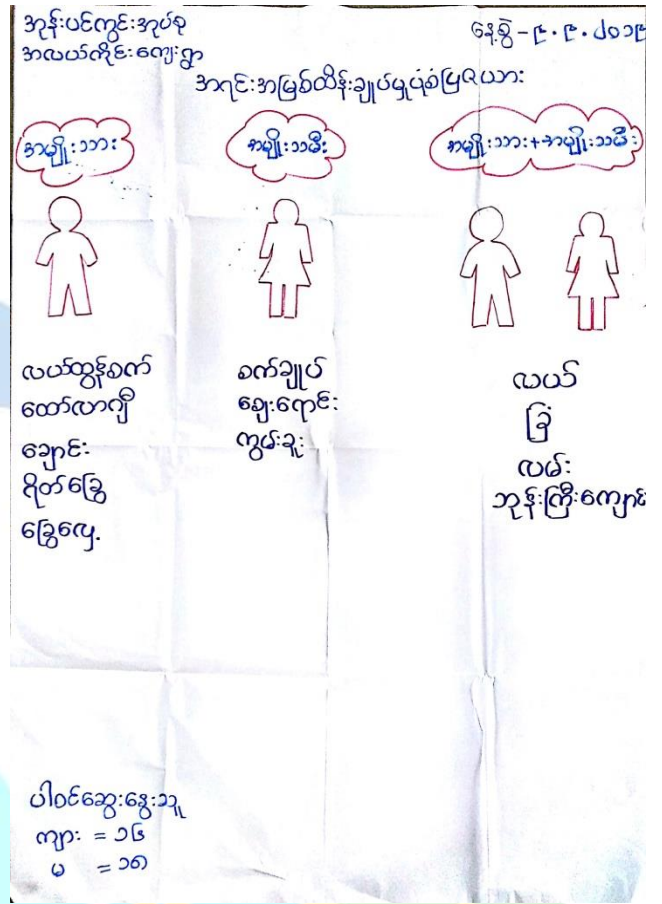 အုန်းပင်ကွင်းအုပ်စု
အလယ်ကိုင်းကျေးရွာ
နေ့စွဲ - ၉.၉.၂၀၁၉
အရင်းအမြစ်ထိန်းချုပ်မှုပုံစံပြဇယား
အမျိုးသား
အမျိုးသမီး
အမျိုးသား+အမျိုးသမီး
လယ်ထွန်စက်
ထော်လာဂျီ
ချောင်း
ရိတ်ခြွေ
ခြွေလှေ့
စက်ချုပ်
ဈေးရောင်း
ကွမ်းခူး
လယ်
ခြံ
လမ်း
ဘုန်းကြီးကျောင်း
ပါဝင်ဆွေးနွေးသူ
ကျား = ၁၆
မ = ၁၈